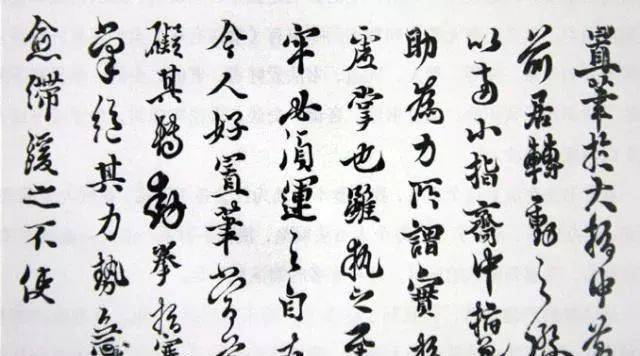 置筆於大指中節
前居轉動之際
以小指齊中指
助為力所謂實指
虛掌也雖執之至
牢必須運之自在
今人好置筆當節
礙其轉動拳指塞
掌絕其力勢
愈滯緩之不便